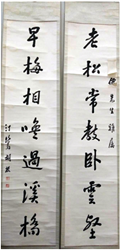 老松常教卧雲壑
先生雅屬
早梅相喚過溪橋